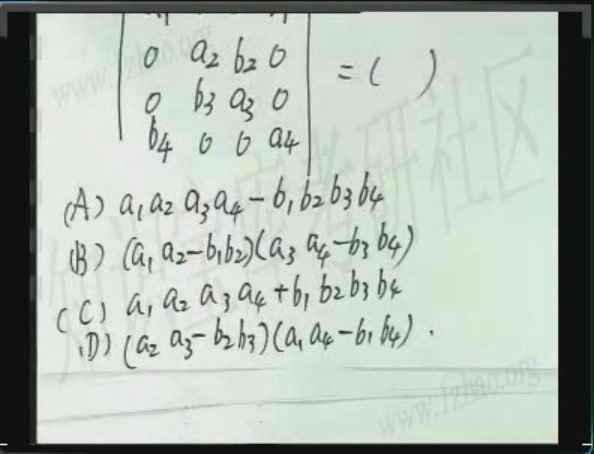 0 a₂ b₂ 0
0 b₃ a₃ 0 = ( )
b₄ 0 0 a₄
(A) a₁a₂a₃a₄-b₁b₂b₃b₄
(B) (a₁a₂-b₁b₂)(a₃a₄-b₃b₄)
(C) a₁a₂a₃a₄+b₁b₂b₃b₄
(D) (a₂a₃-b₂b₃)(a₁a₄-b₁b₄).
www.1zhao.org
www.1zhao.org